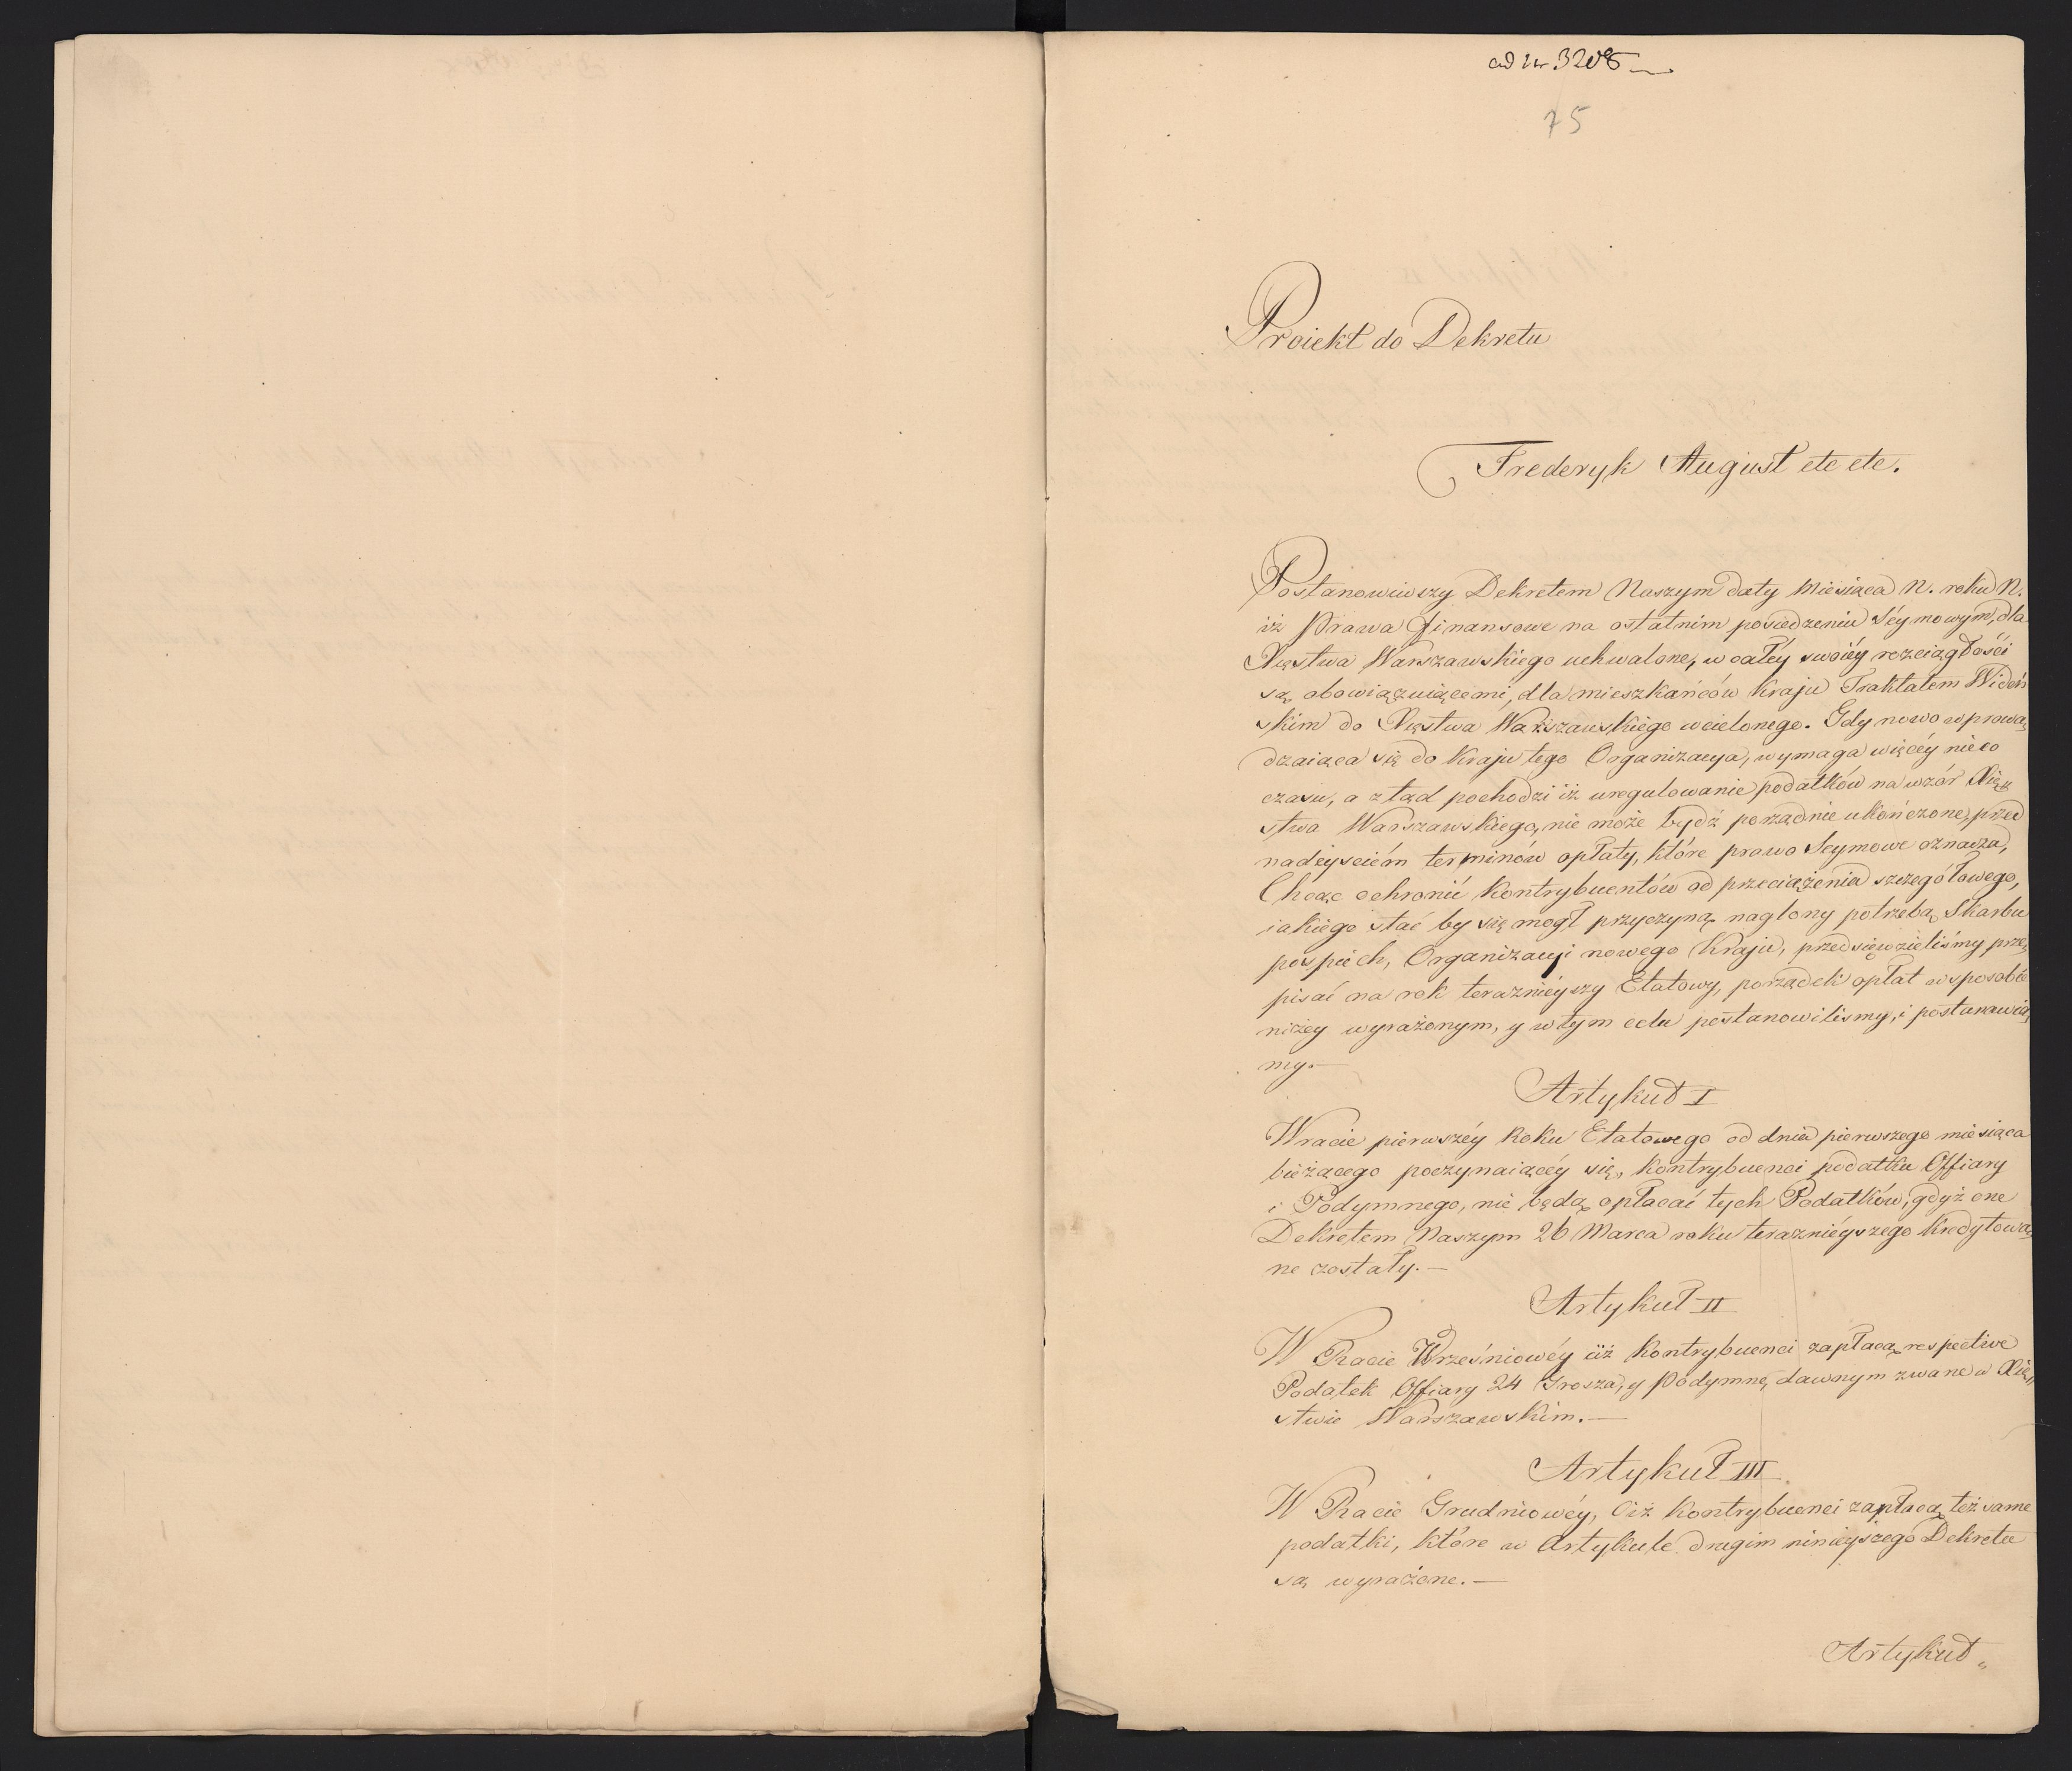 ad Nr 3208
75
Proiekt do Dekretu
Frederyk August etc etc.
Postanowiwszy Dekretem Naszym daty Miesiąca N. roku N.
iż Prawa Finansowe na ostatnim posiedzeniu Séymowym, dla
Xięstwa Warszawskiego uchwalone, w całéy swoiéy rozciągłości
są obowiązuiącemi, dla mieszkańców Kraju Traktatem Wideń
skim do Xięstwa Warszawskiego wcielonego. Gdy nowo wprowa„
dzaiąca się do Kraju tego Organizacya, wymaga więcéy nieco
czasu, a ztąd pochodzi iż uregulowanie podatków na wzór Xię„
stwa Warszawskiego, nie może bydź porządnie ukończone, przed
nadéyściém terminów opłaty, które prawo Seymowe oznacza,
Chcąc ochronić Kontrybuentów od przeciążenia szczegółowego,
iakiego stać by się mogł przyczyną naglony potrzebą Skarbu
pospiech, Organizacyi nowego Kraju, przedsięwzieliśmy prze„
pisać na rok teraznieyszy Etatowy, porządek opłat w sposobie
niżey wyrażonym, y w tym celu postanowilismy, i postanawia„
my.—
Artykuł I
W racie pierwszéy Roku Etatowego od dnia pierwszego miesiąca
bieżącego poczynaiącéy się, Kontrybuenci podatku Offiary
i Podymnego, nie będą opłacać tych Podatków, gdyż one
Dekretem Naszym 26 Marca roku teraznieyszego kredytowa„
ne zostały.—
Artykuł II
W Racie Wrześniowéy ciż Kontrybuenci zapłacą respective
Podatek Offiary 24 Grosza, y Podymne, dawnym zwane w Xię„
stwie Warszawskim.—
Artykuł III
W Racie Grudniowéy, Ciż Kontrybuenci zapłacą też same
podatki, które w Artykule drugim ninieyszego Dekretu
są wyrażone.—
Artykuł„